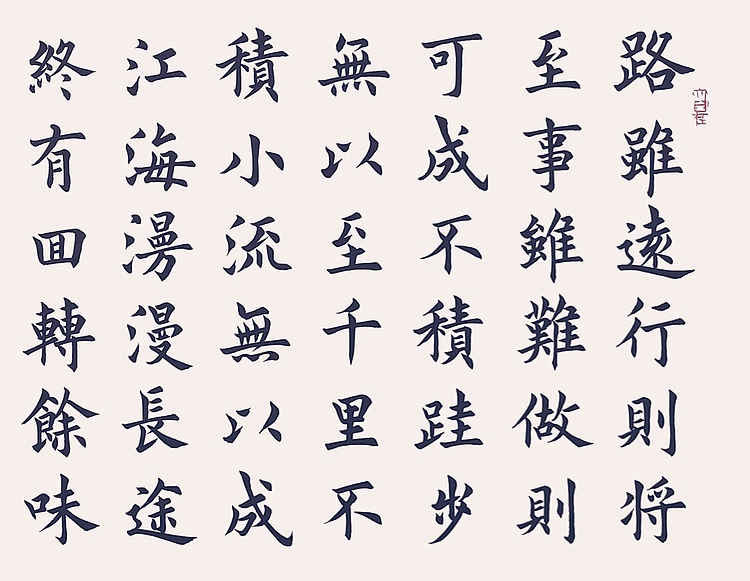 路雖遠行則將
至事雖難做則
可成不積跬步
無以至千里不
積小流無以成
江海漫漫長途
終有回轉餘味